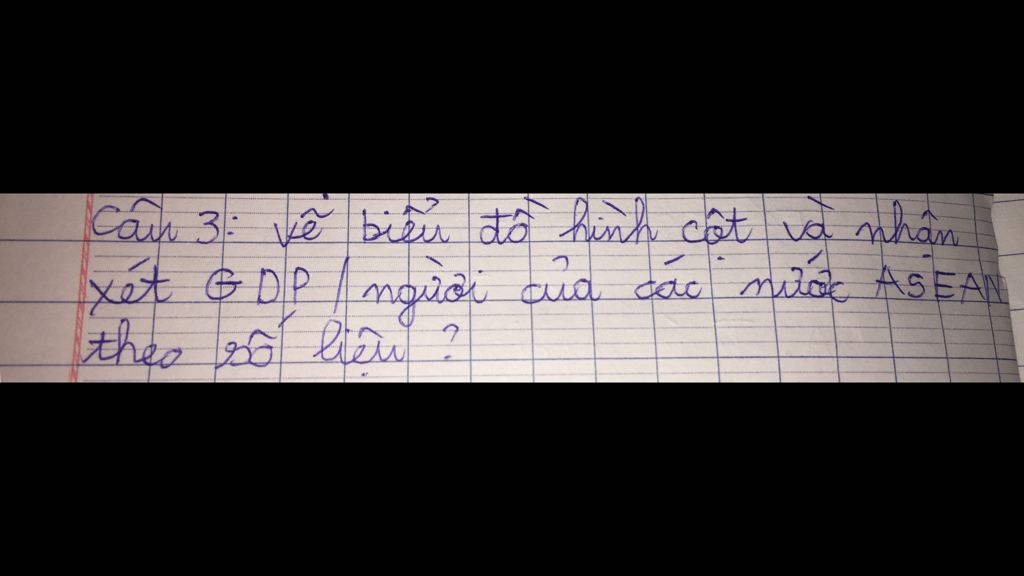 Câu 3: vẽ biểu đồ hình cột và nhận
xét GDP/người của các nước ASEAN
theo số liệu?